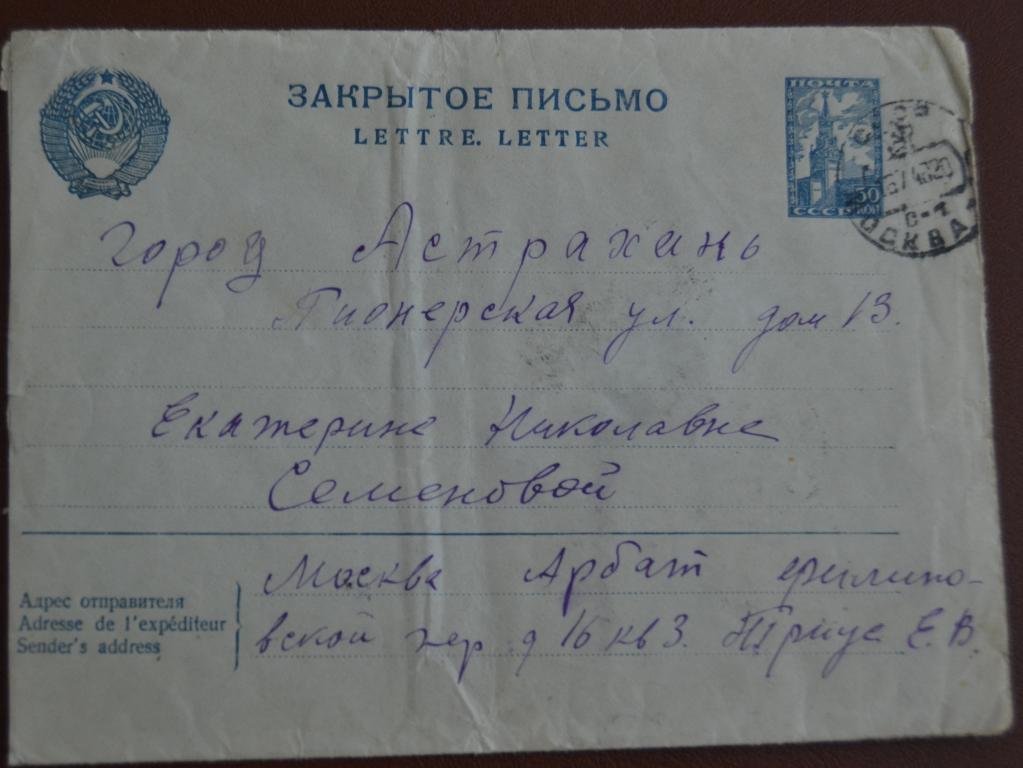 ЗАКРЫТОЕ ПИСЬМО
LETTRE. LETTER
ПОЧТА
50
КОП
СССР
МОСКВА
Город Астрахань
Пионерская ул. дом 13.
Екатерине Николавне
Семеновой
Адрес отправителя
Adresse de l'expéditeur
Sender's address
Москва Арбат филипо-
вской пер д 16 кв 3. Е. В.